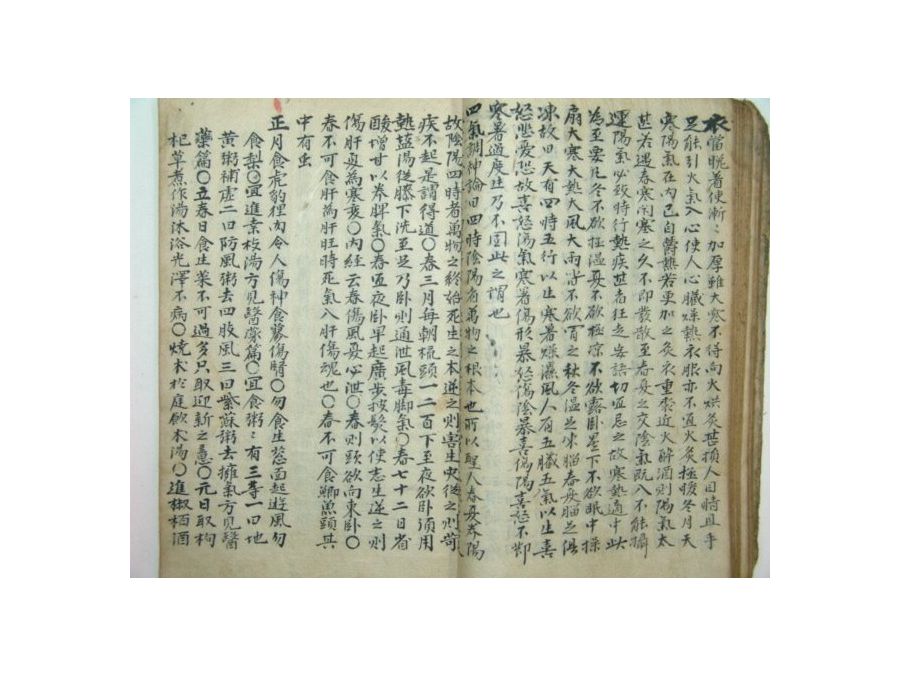 衣當晩着使漸〻加厚雖大寒不得向火烘炙甚損人目暗且手
足能引火氣入心使人心臟燥熱衣服亦不宜火炙極暖冬月天
寒陽氣在内已自鬱熱若更加之炙衣重裘近火醉酒則陽氣太
甚若遇春寒閉塞之久不即發散至春夏之交陰氣既入不能攝
運陽氣必致時行熱疾甚者狂走妄語切宜忌之故寒熱適中此
為至要凡冬不欲極溫夏不欲極凉不欲露卧星下不欲眠中操
扇大寒大熱大風大雨皆不欲冒之秋冬溫足凍腦春夏腦足俱
凍故曰天有四時五行以生寒暑燥濕風人有五臟五氣以生喜
怒悲憂恐故喜怒傷氣寒暑傷形暴怒傷陰暴喜傷陽喜怒不節
寒暑過度生乃不固此之謂也
四氣調神論曰四時陰陽者萬物之根本也所以聖人春夏養陽
故陰陽四時者萬物之終始死生之本逆之則害生從之則苛
疾不起是謂得道○春三月每朝梳頭一二百下至夜欲卧須用
熱塩湯從膝下洗至足乃卧則通泄風毒脚氣○春七十二日省
酸增甘以养脾氣○春宜夜卧早起廣步披髮以使志生逆之則
傷肝夏為寒變○内經云春傷風夏必泄○春則頭欲向東卧○
春不可食肝為肝旺時死氣入肝傷魂也○春不可食鯽魚頭其
中有虫
正月食虎豹狸肉令人傷神食蓼傷腎○勿食生葱面起遊風勿
食梨○宜進桑枝湯方見醫藥篇○宜食粥〻有三等一曰地
黄粥補虛二曰防風粥去四肢風三曰紫蘇粥去擁氣方見醫
藥篇○立春日食生菜不可過多只取迎新之意○元日取枸
杞草煮作湯沐浴光澤不病○燒术於庭飮术湯○進椒栢酒